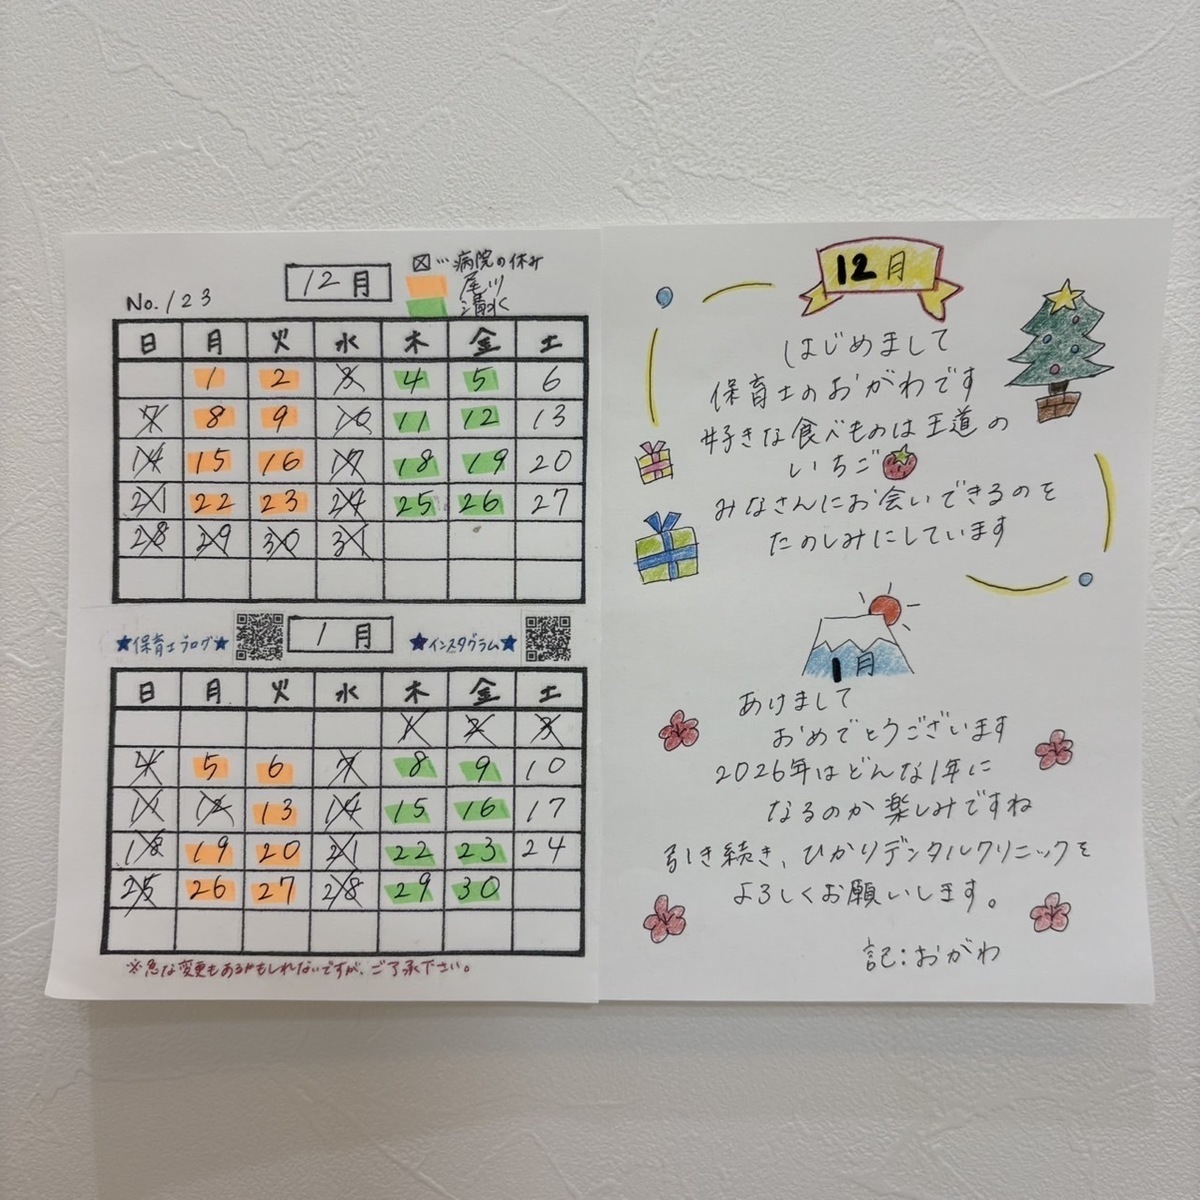 No.123
12月
☒…病院の休み
尾川
清水
日 月 火 水 木 金 土
1 2 3 4 5 6
7 8 9 10 11 12 13
14 15 16 17 18 19 20
21 22 23 24 25 26 27
28 29 30 31
★保育士ブログ★
1月
★インスタグラム★
日 月 火 水 木 金 土
1 2 3
4 5 6 7 8 9 10
11 12 13 14 15 16 17
18 19 20 21 22 23 24
25 26 27 28 29 30
※急な変更もあるかもしれないですが、ご了承下さい。
12月
はじめまして
保育士のおがわです
好きな食べものは王道の
いちご
みなさんにお会いできるのを
たのしみにしています
1月
あけまして
おめでとうございます
2026年はどんな1年に
なるのか楽しみですね
引き続き、ひかりデンタルクリニックを
よろしくお願いします。
記:おがわ